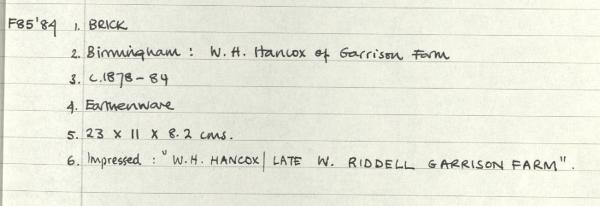 F85'84 1. BRICK
2. Birmingham : W. H. Hancox of Garrison Farm
3. c.1878-84
4. Earthenware
5. 23 x 11 x 8.2 cms.
6. Impressed : "W.H. HANCOX| LATE W. RIDDELL GARRISON FARM".